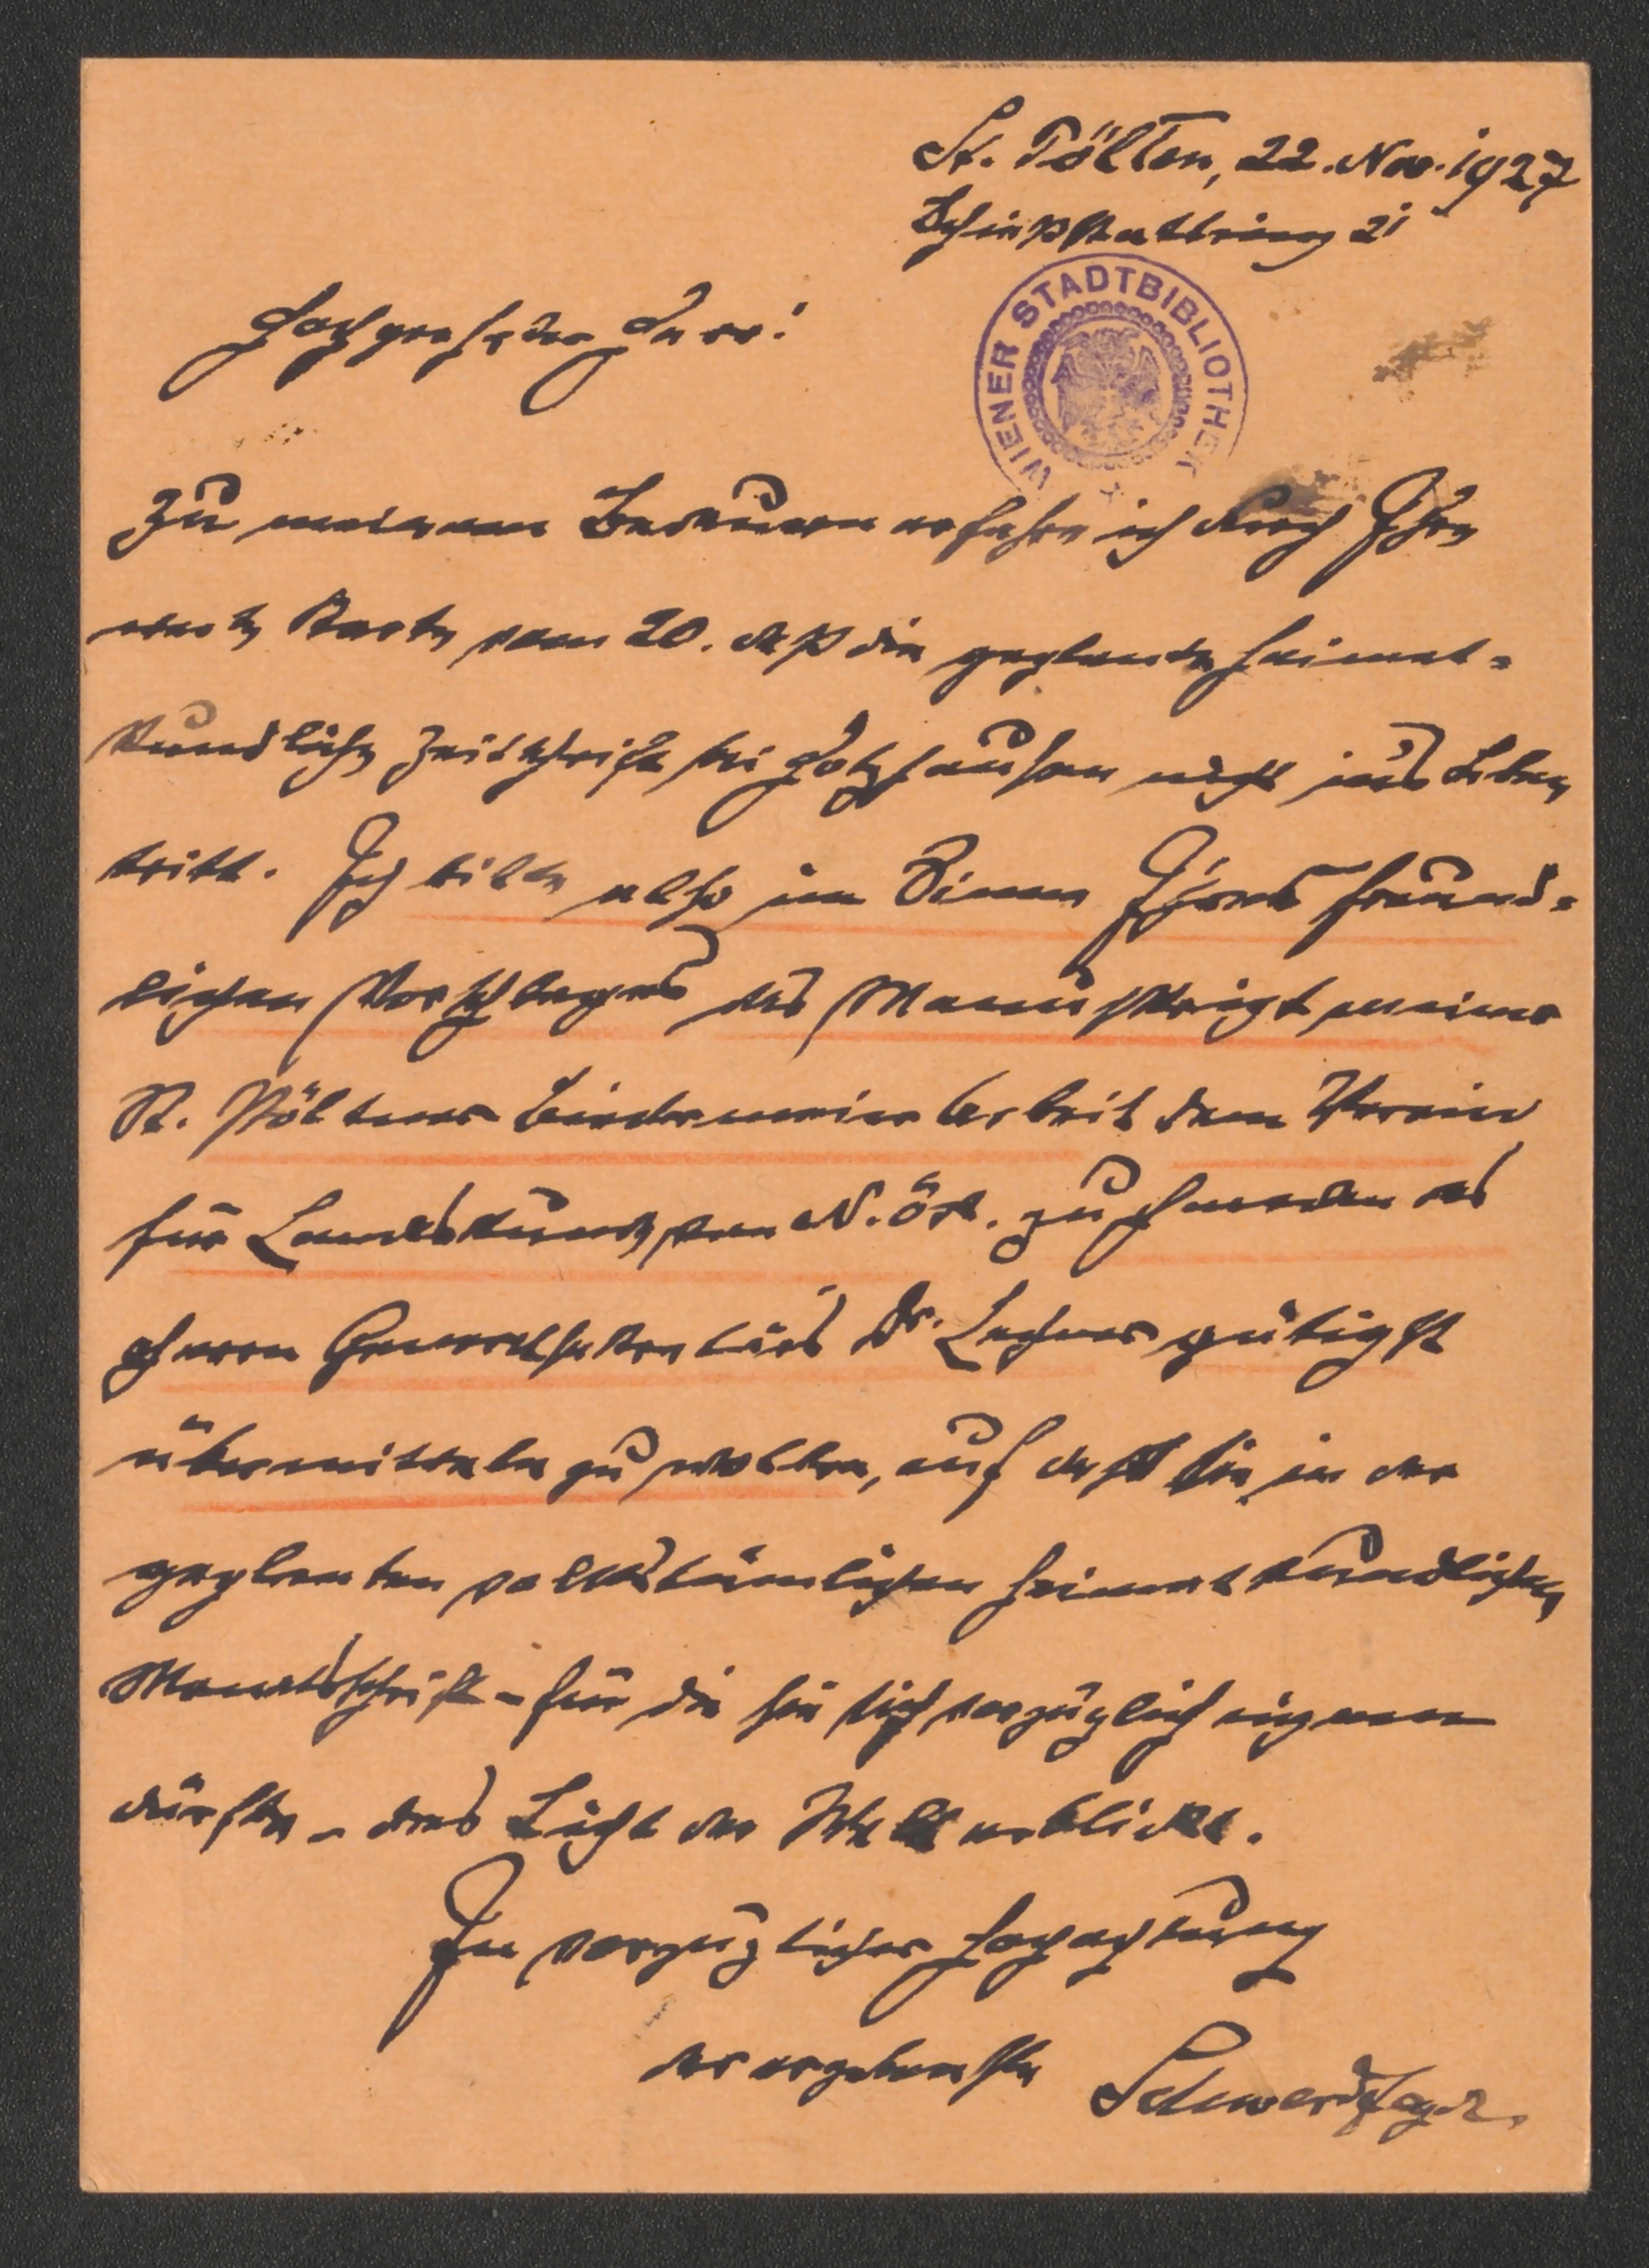 St. Pölten, 22. Nov. 1927
Schießstattring 21
WIENER STADTBIBLIOTHEK
Hochgeehrter Herr!
Zu meinem Bedauern erfahre ich durch Ihre
werte Karte vom 20. daß die geplante heimat-
kundliche Zeitschrift bei Holzhausen nicht ins Leben
tritt. Ich bitte also im Sinne Ihres freund-
lichen Vorschlages das Manuskript meiner
St. Pöltner Biedermeier Arbeit dem Verein
für Landeskunde von N.Öst. zuhanden des
Herrn Generalsekretärs Dr. Lechner gütigst
übermitteln zu wollen, auf daß sie in der
geplanten volkstümlichen heimatkundlichen
Monatsschrift – für die sie sich vorzüglich eignen
dürfte – das Licht der Welt erblickt.
In vorzüglicher Hochachtung
der ergebenste Schwerdfeger